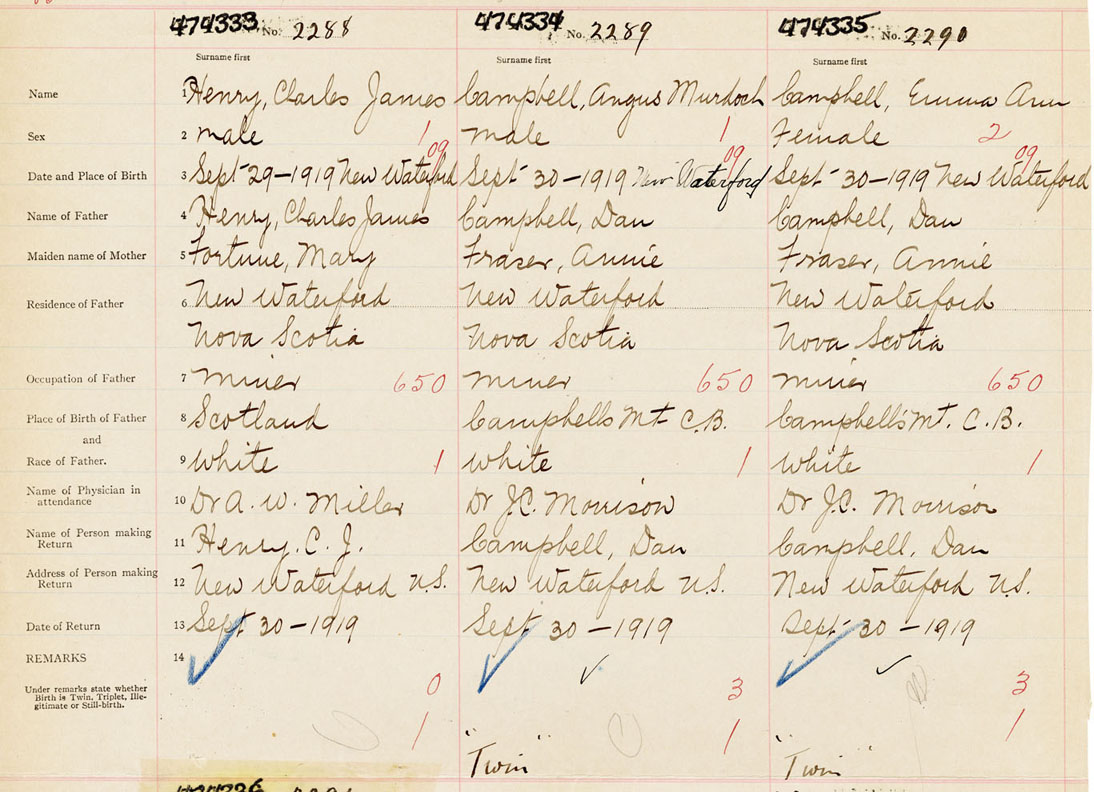 474333 No. 2288 474334 No. 2289 474335 No. 2290
Surname first Surname first Surname first
Name 1 Henry, Charles James Campbell, Angus Murdoch Campbell, Emma Ann
Sex 2 male 1 male 1 Female 2
09 09 09
Date and Place of Birth 3 Sept 29-1919 New Waterford Sept 30-1919 New Waterford Sept 30-1919 New Waterford
Name of Father 4 Henry, Charles James Campbell, Dan Campbell, Dan
Maiden name of Mother 5 Fortune, Mary Fraser, Annie Fraser, Annie
Residence of Father 6 New Waterford New Waterford New Waterford
Nova Scotia Nova Scotia Nova Scotia
Occupation of Father 7 miner 650 miner 650 miner 650
Place of Birth of Father 8 Scotland Campbells Mt C.B. Campbell's Mt. C.B.
and
Race of Father. 9 white 1 white 1 white 1
Name of Physician in
attendance 10 Dr A. W. Miller Dr J.C. Morrison Dr J.C. Morrison
Name of Person making
Return 11 Henry. C. J. Campbell, Dan Campbell, Dan
Address of Person making
Return 12 New Waterford N.S. New Waterford N.S. New Waterford N.S.
Date of Return 13 Sept 30-1919 Sept 30-1919 Sept 30-1919
REMARKS 14
Under remarks state whether
Birth is Twin, Triplet, Ille-
gitimate or Still-birth.
0 3 3
1 1 1
"Twin" "Twin"